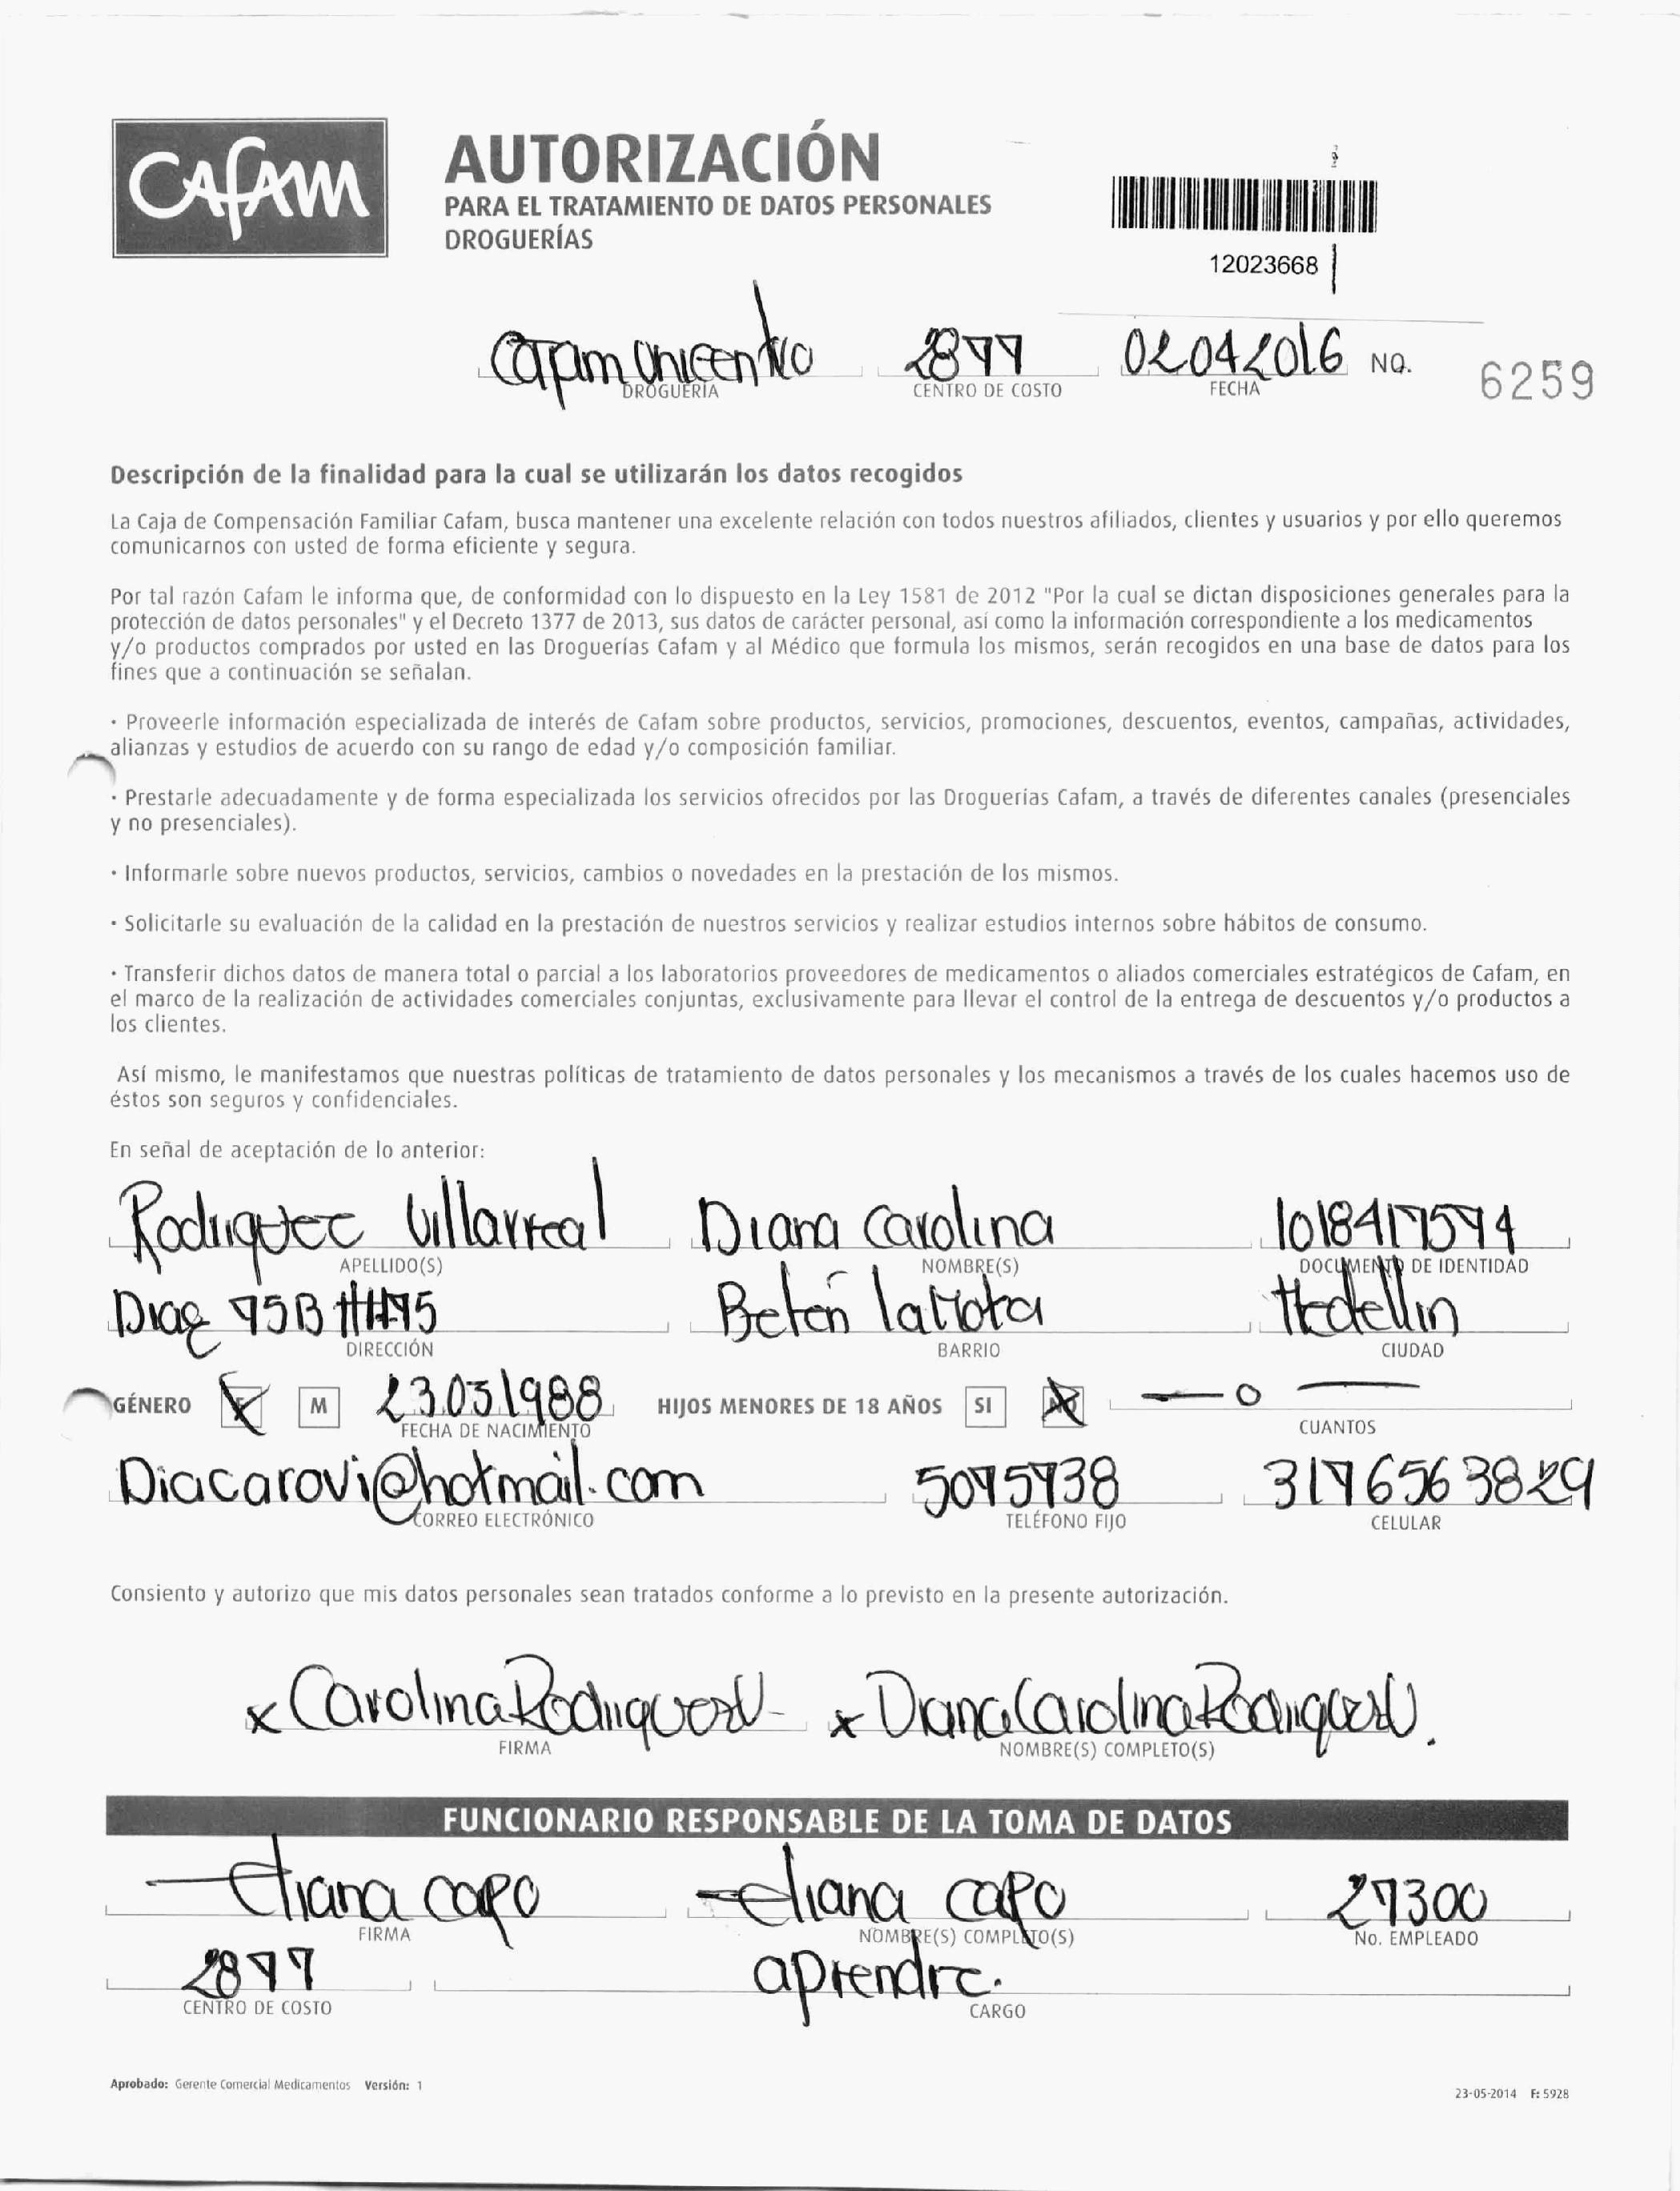 CAFAM
AUTORIZACIÓN
PARA EL TRATAMIENTO DE DATOS PERSONALES
DROGUERÍAS
12023668
Cafam Unicentro 2877 02042016 NO. 6259
DROGUERÍA CENTRO DE COSTO FECHA
Descripción de la finalidad para la cual se utilizarán los datos recogidos
La Caja de Compensación Familiar Cafam, busca mantener una excelente relación con todos nuestros afiliados, clientes y usuarios y por ello queremos
comunicarnos con usted de forma eficiente y segura.
Por tal razón Cafam le informa que, de conformidad con lo dispuesto en la Ley 1581 de 2012 "Por la cual se dictan disposiciones generales para la
protección de datos personales" y el Decreto 1377 de 2013, sus datos de carácter personal, así como la información correspondiente a los medicamentos
y/o productos comprados por usted en las Droguerías Cafam y al Médico que formula los mismos, serán recogidos en una base de datos para los
fines que a continuación se señalan.
· Proveerle información especializada de interés de Cafam sobre productos, servicios, promociones, descuentos, eventos, campañas, actividades,
alianzas y estudios de acuerdo con su rango de edad y/o composición familiar.
· Prestarle adecuadamente y de forma especializada los servicios ofrecidos por las Droguerías Cafam, a través de diferentes canales (presenciales
y no presenciales).
· Informarle sobre nuevos productos, servicios, cambios o novedades en la prestación de los mismos.
· Solicitarle su evaluación de la calidad en la prestación de nuestros servicios y realizar estudios internos sobre hábitos de consumo.
· Transferir dichos datos de manera total o parcial a los laboratorios proveedores de medicamentos o aliados comerciales estratégicos de Cafam, en
el marco de la realización de actividades comerciales conjuntas, exclusivamente para llevar el control de la entrega de descuentos y/o productos a
los clientes.
Así mismo, le manifestamos que nuestras políticas de tratamiento de datos personales y los mecanismos a través de los cuales hacemos uso de
éstos son seguros y confidenciales.
En señal de aceptación de lo anterior:
Rodriguez Villarreal Diana Carolina 1018417574
APELLIDO(S) NOMBRE(S) DOCUMENTO DE IDENTIDAD
Diag 75B Belén la Mota Medellin
DIRECCIÓN BARRIO CIUDAD
GÉNERO F M 23.03.1988 HIJOS MENORES DE 18 AÑOS SI NO — 0 —
FECHA DE NACIMIENTO CUANTOS
Diacarovi@hotmail.com 5075738 3176563829
CORREO ELECTRÓNICO TELÉFONO FIJO CELULAR
Consiento y autorizo que mis datos personales sean tratados conforme a lo previsto en la presente autorización.
x Carolina Rodriguez V- x Diana Carolina Rodriguez V.
FIRMA NOMBRE(S) COMPLETO(S)
FUNCIONARIO RESPONSABLE DE LA TOMA DE DATOS
Eliana capo Eliana capo 27300
FIRMA NOMBRE(S) COMPLETO(S) No. EMPLEADO
2877 aprendiz.
CENTRO DE COSTO CARGO
Aprobado: Gerente Comercial Medicamentos Versión: 1
23-05-2014 F: 5928